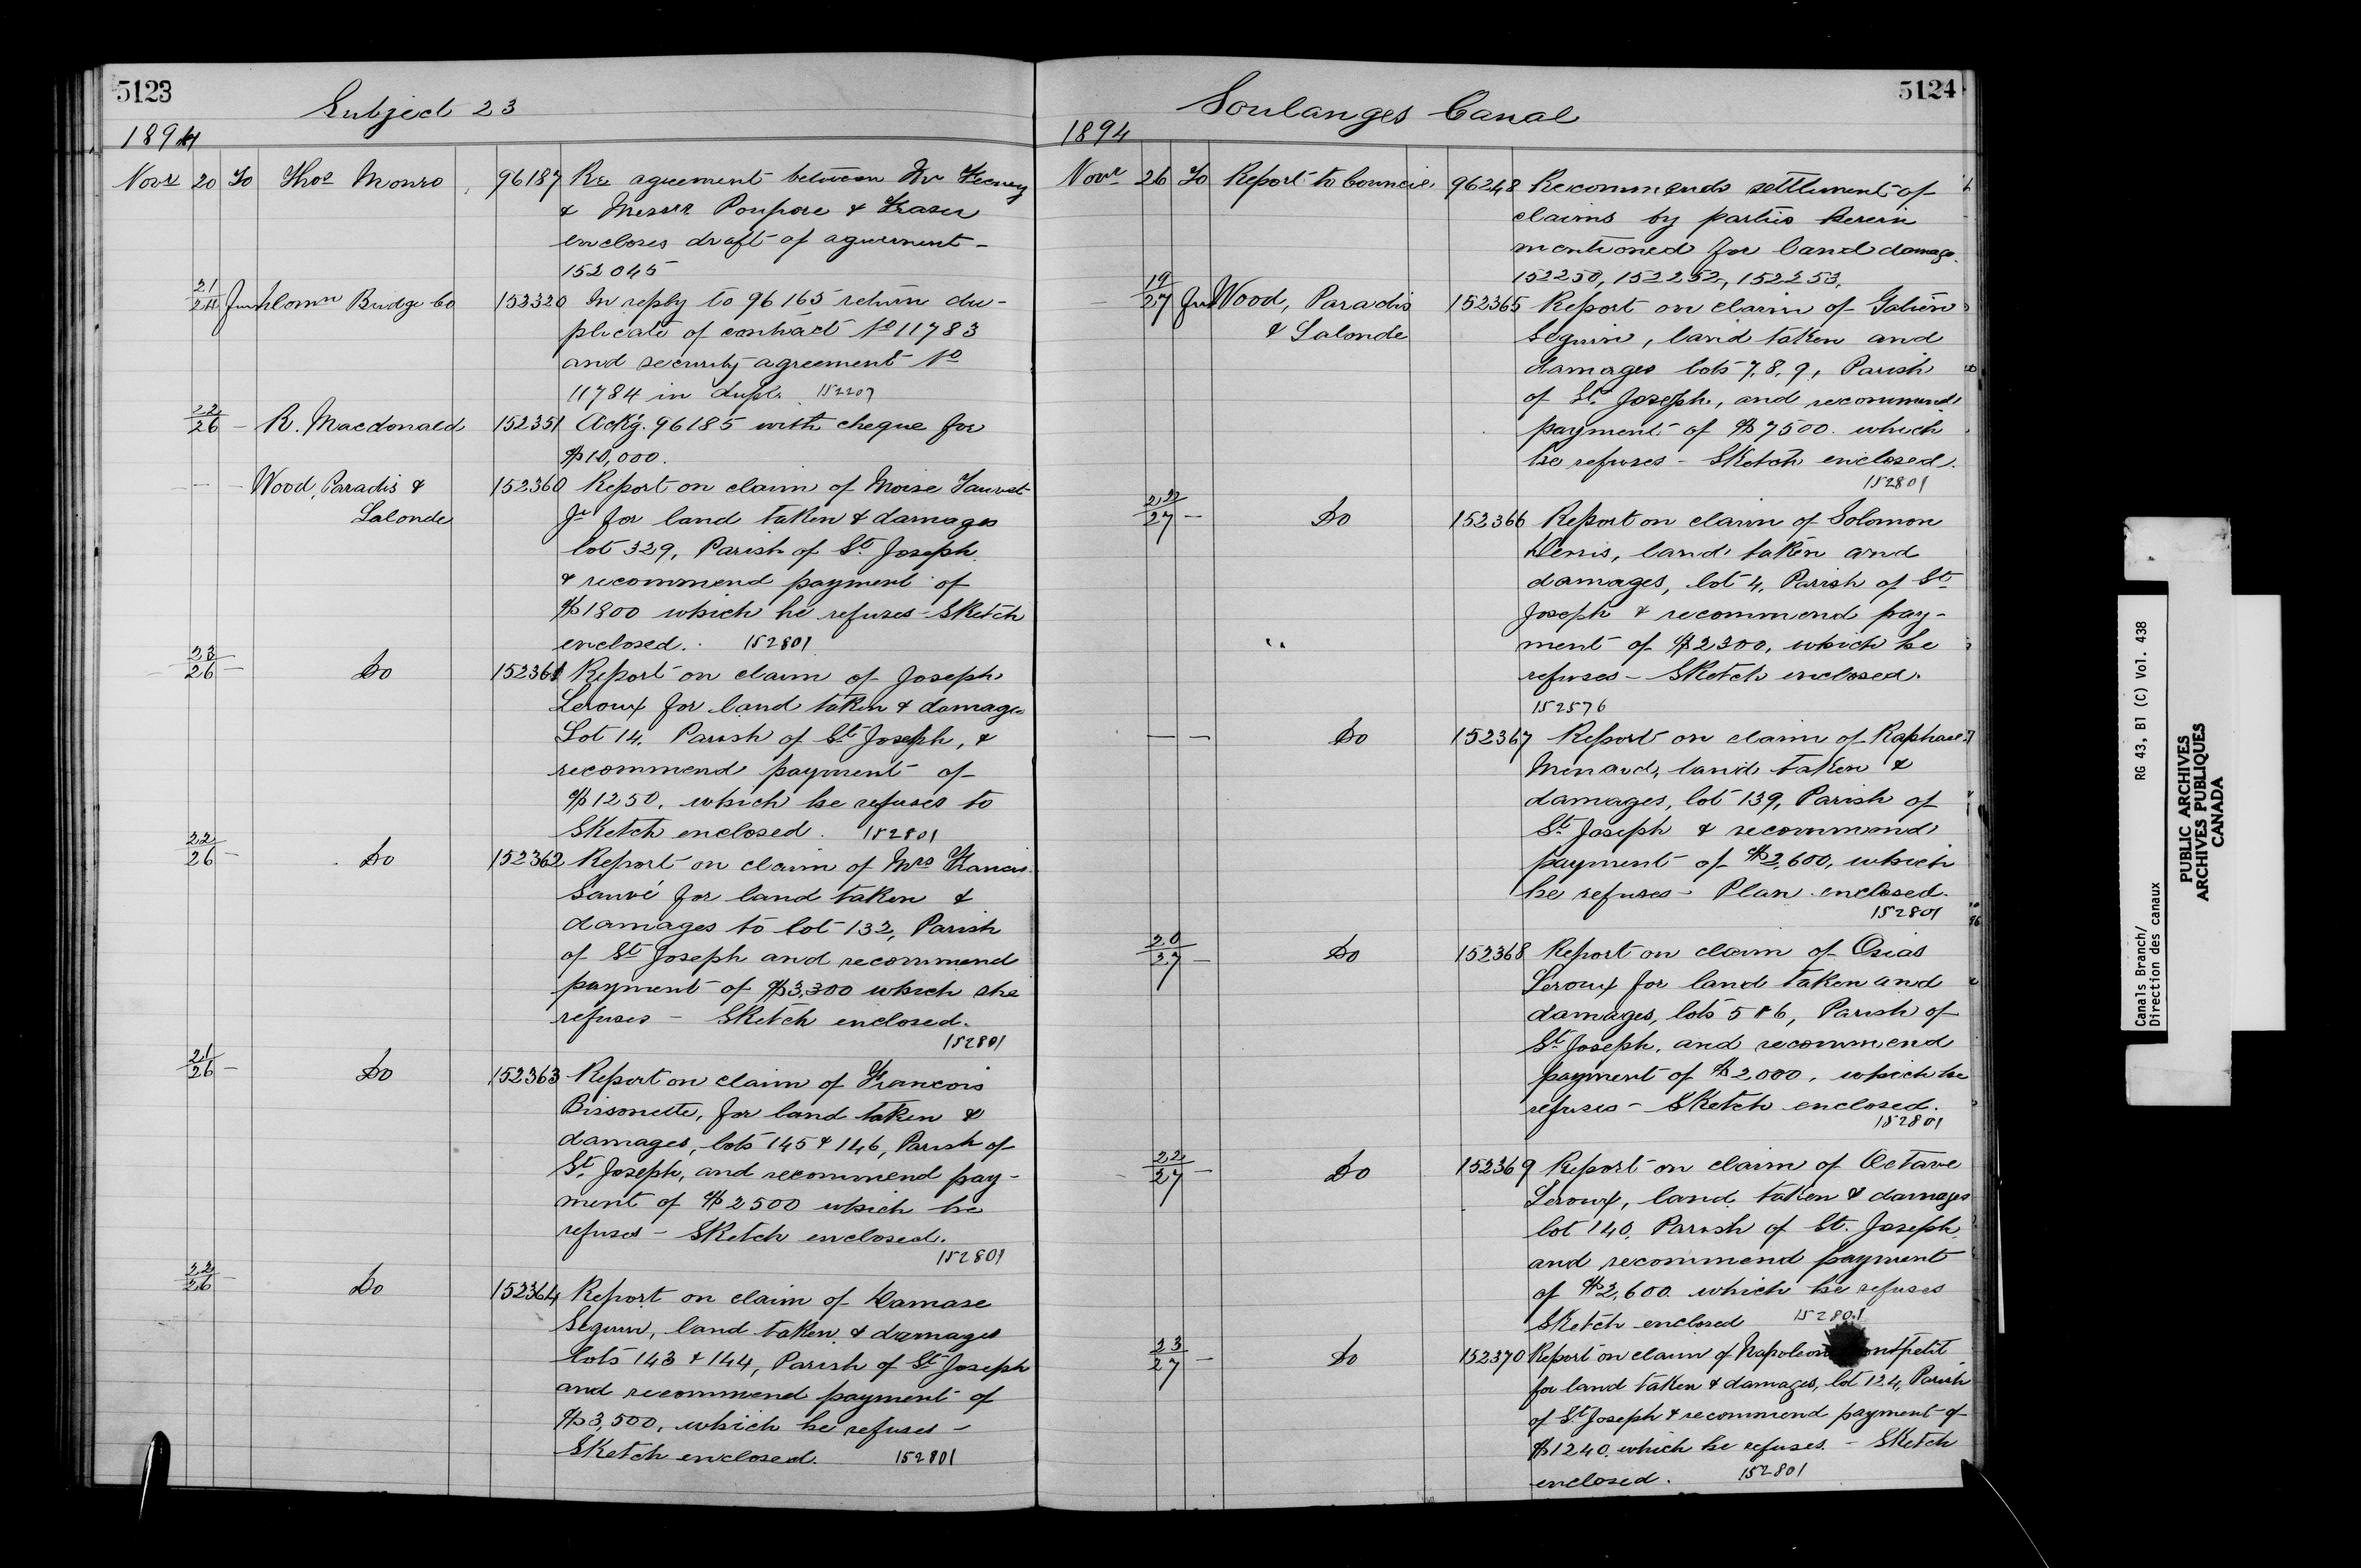 5123
Subject 23
1894
Novr 20 To Thos Monro 96187 Re agreement between Mr Feeney
& Messrs Poupore & Fraser
encloses draft of agreement -
152045
21/24 from Domn Bridge Co 152320 In reply to 96165 return du-
plicate of contract No 11783
and security agreement No
11784 in dupl. 152207
22/26 - R. Macdonald 152351 Ackg. 96185 with cheque for
$10,000.
- - Wood, Paradis & 152360 Report on claim of Moise
Lalonde Jr for land taken & damages
lot 329, Parish of St Joseph
& recommend payment of
$1800 which he refuses - Sketch
enclosed. 152801
23/26 - Do 152361 Report on claim of Joseph
Leroux for land taken & damages
Lot 14, Parish of St Joseph, &
recommend payment of
$1250, which he refuses to
Sketch enclosed. 152801
22/26 - Do 152362 Report on claim of Mrs Francis
Sauvé for land taken &
damages to lot 132, Parish
of St Joseph and recommend
payment of $3,300 which she
refuses - Sketch enclosed.
152801
21/26 - Do 152363 Report on claim of Francois
Bissonette, for land taken &
damages, lots 145 & 146, Parish of
St Joseph, and recommend pay-
ment of $2500 which he
refuses - Sketch enclosed.
152801
22/26 - Do 152364 Report on claim of Damase
Seguin, land taken & damages
lots 143 & 144, Parish of St Joseph
and recommend payment of
$3,500, which he refuses -
Sketch enclosed. 152801
5124
Soulanges Canal
1894
Novr 26 To Report to Council 96248 Recommends settlement of
claims by parties herein
mentioned for land damage.
152250, 152252, 152253,
19/27 from Wood, Paradis 152365 Report on claim of
& Lalonde Seguin, land taken and
damages lots 7, 8, 9, Parish
of St Joseph, and recommend
payment of $7500. which
he refuses - Sketch enclosed.
152801
22/27 - Do 152366 Report on claim of Solomon
Denis, land taken and
damages, lot 4, Parish of St
Joseph & recommend pay-
" ment of $2300, which he
refuses - Sketch enclosed.
152576
- - Do 152367 Report on claim of Raphael
Menard, land taken &
damages, lot 139, Parish of
St Joseph & recommend
payment of $2,600, which
he refuses - Plan enclosed.
152801
20/27 - Do 152368 Report on claim of Osias
Leroux for land taken and
damages, lots 5 & 6, Parish of
St Joseph, and recommend
payment of $2000, which he
refuses - Sketch enclosed.
152801
22/27 - Do 152369 Report on claim of Octave
Leroux, land taken & damages
lot 140, Parish of St. Joseph,
and recommend payment
of $2,600. which he refuses
Sketch enclosed 152801
23/27 - Do 152370 Report on claim of Napoleon
for land taken & damages, lot 124, Parish
of St Joseph & recommend payment of
$1240. which he refuses. - Sketch
enclosed. 152801
Canals Branch/ RG 43, B1 (C) Vol. 438
Direction des canaux
PUBLIC ARCHIVES
ARCHIVES PUBLIQUES
CANADA